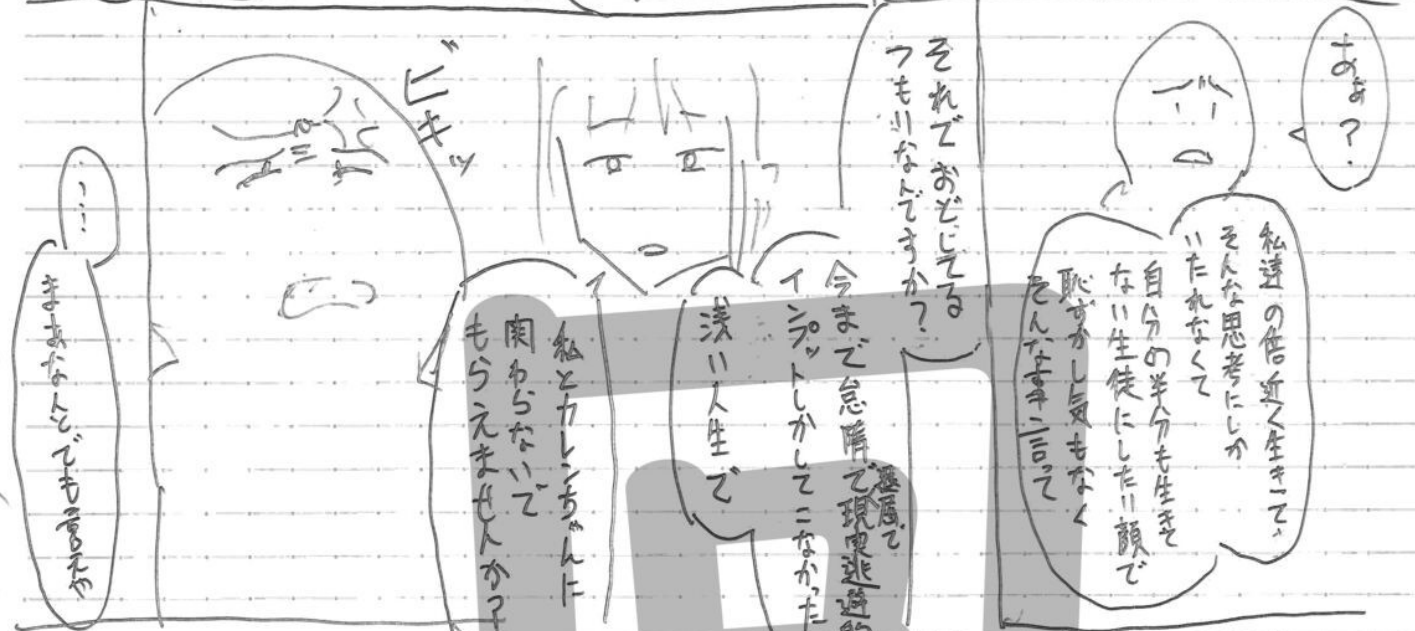 あぁ?
私達の倍近く生きてて、
そんな思考にしか
いたれなくて
自分の半分も生きて
ない生徒にしたり顔で
恥ずかし気もなく
そんな
言って
それでおどしてる
つもりなんですか?
今まで怠惰で
現実逃避
インプットしかしてこなかった
浅い人生で
私とカレンちゃんに
関わらないで
もらえませんか?
ビキッ
…
まぁなんとでも言えや